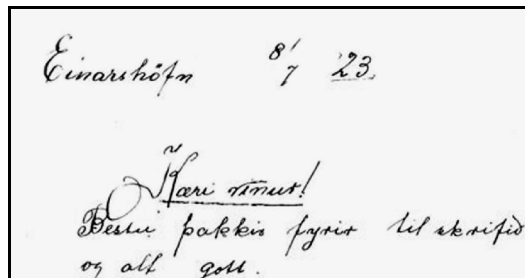 Einarshöfn 8/7 '23.
Kæri vinur!
Bestu þakkir fyrir tilskrifið
og alt gott.